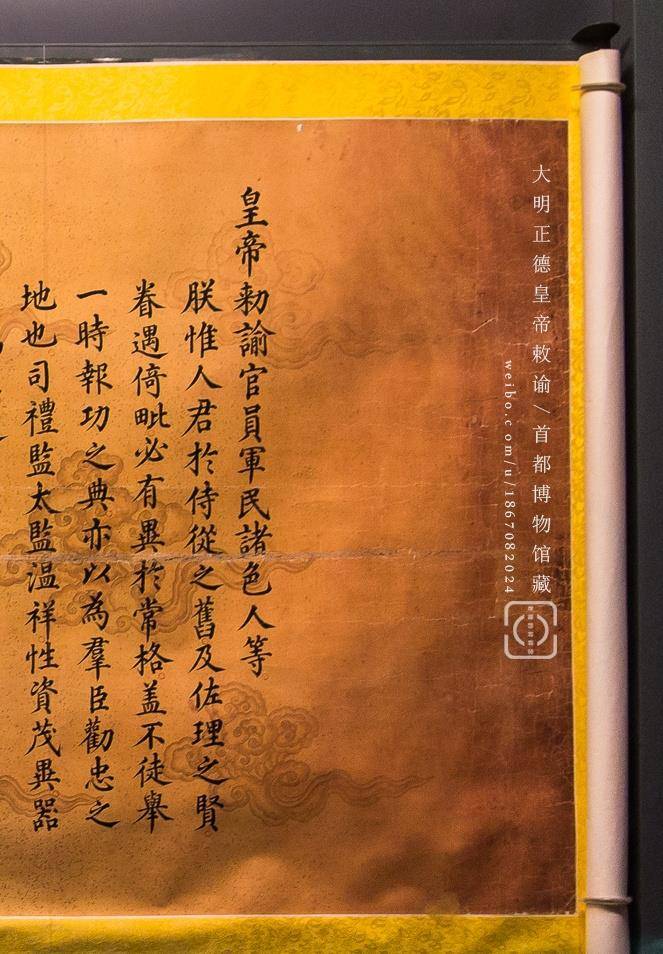 大明正德皇帝敕谕/首都博物馆藏
weibo.com/u/1867082024
皇帝勑諭官員軍民諸色人等
朕惟人君於侍從之舊及佐理之賢
眷遇倚毗必有異於常格蓋不徒舉
一時報功之典亦以為羣臣勸忠之
地也司禮監太監温祥性資茂異器